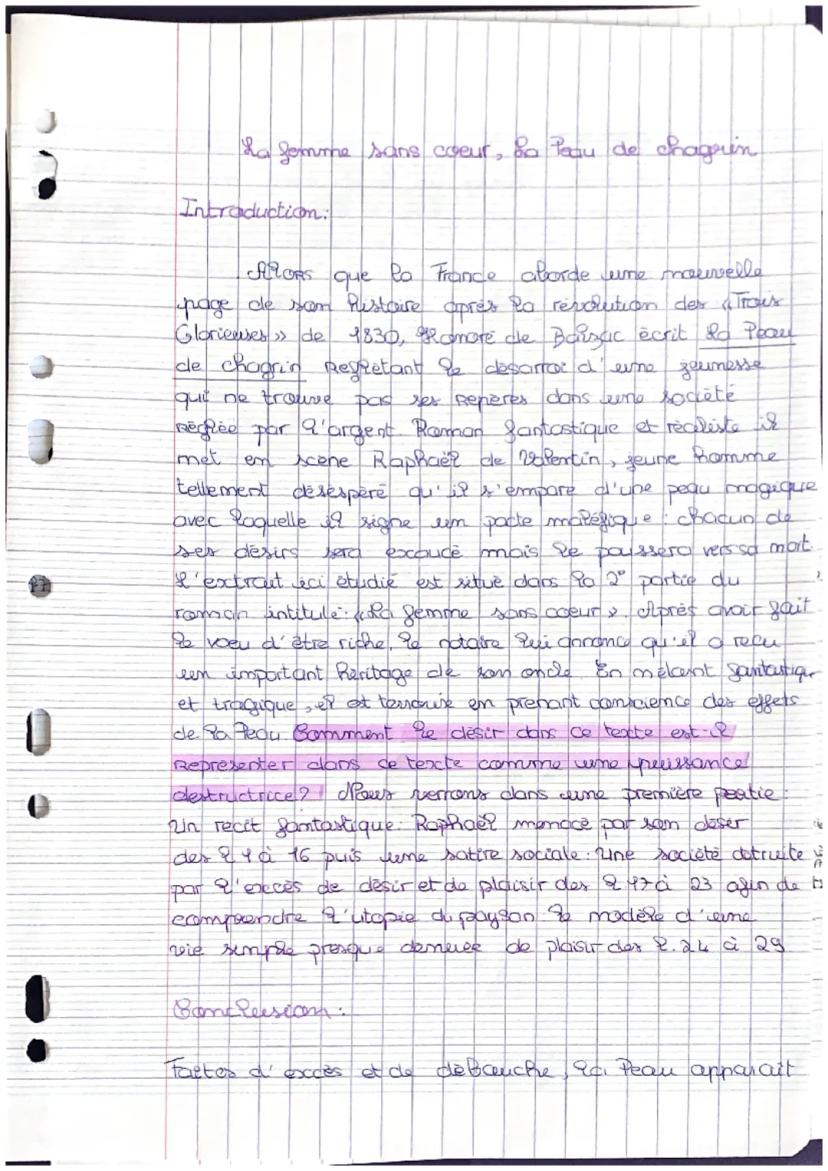 La femme sans coeur, La Peau de chagrin
Introduction:
Alors que la France aborde une nouvelle
page de son histoire après la révolution des « Trois
Glorieuses » de 1830, Honoré de Balzac écrit La Peau
de chagrin Regrétant le désarroi d'une jeunesse
qui ne trouve pas ses Repères dans une société
réglée par l'argent. Roman fantastique et réaliste il
met en scène Raphaël de Valentin, jeune homme
tellement désespéré qu'il s'empare d'une peau magique
avec laquelle il signe un pacte maléfique : chacun de
ses désirs sera exaucé mais le poussera vers sa mort.
L'extrait ici étudié est situé dans la 2° partie du
roman intitulé: « La femme sans coeur ». Après avoir fait
le voeu d'être riche, le notaire lui annonce qu'il a reçu
un important héritage de son oncle. En mêlant fantastique
et tragique, il est en prenant conscience des effets
de la Peau Comment le désir dans ce texte est-il
Représenter dans ce texte comme une puissance
destructrice? Nous verrons dans une première partie :
Un récit fantastique: Raphaël menacé par son désir
des l 1 à 16 puis une satire sociale: Une société détruite
par l'excès de désir et de plaisir des l 17 à 23 afin de
comprendre l'utopie du paysan le modèle d'une
vie simple presque de plaisir des l. 24 à 29
Conclusion :
d'excès et de débauche, la Peau apparait